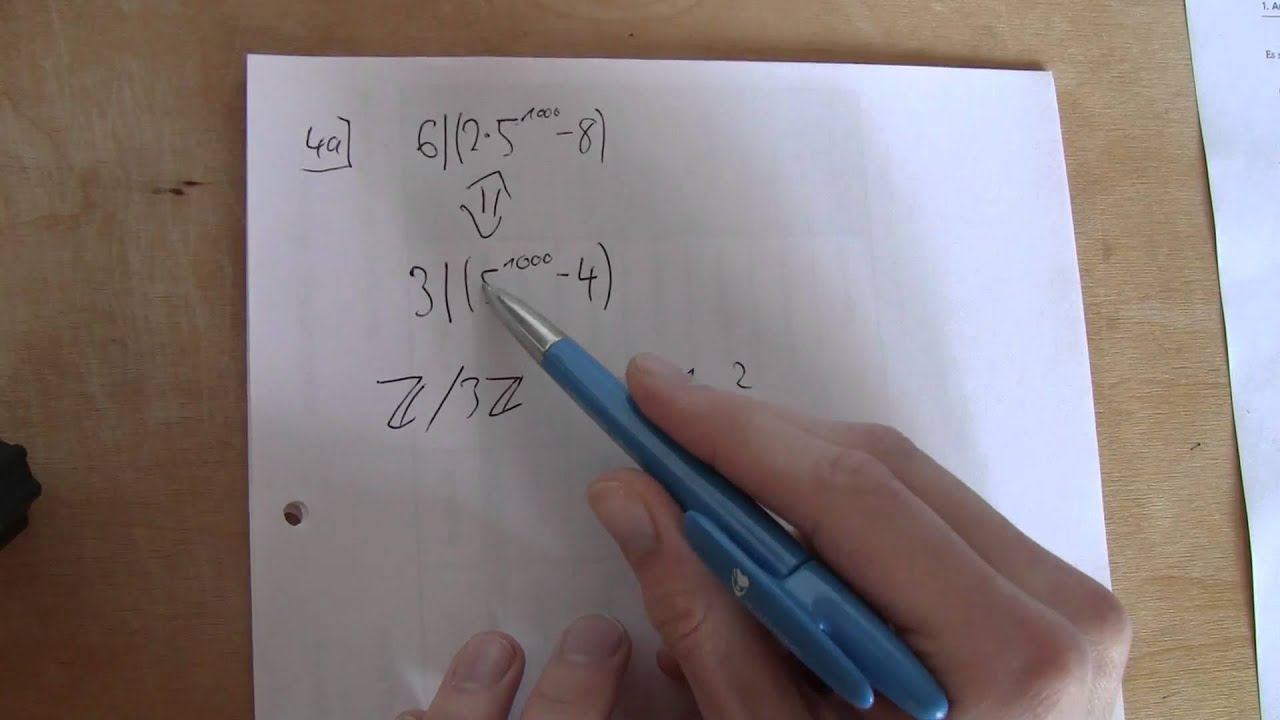 4a] 6|(2·5^1000-8)
⇕
3|(5^1000-4)
ℤ/3ℤ 2
1. A
Es